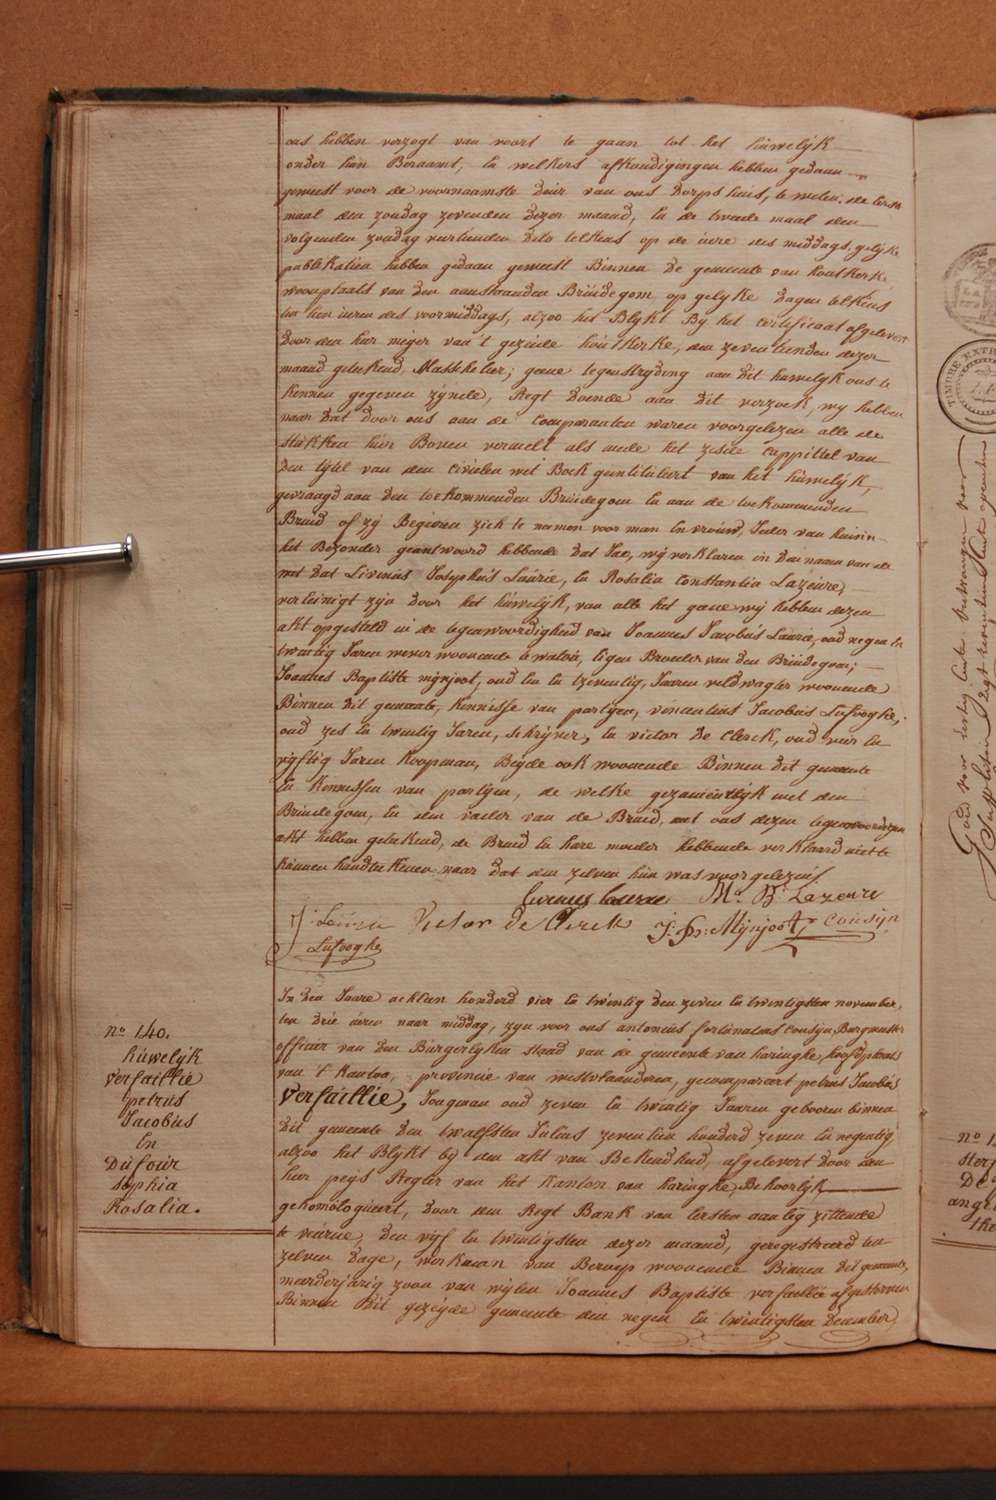 ons hebben verzogt van voort te gaan tot het húwelÿk
onder hún Beraamt, en welkers afkondigingen hebben gedaan
geweest voor de voornaamste deúr van ons dorps húis, te weten: de eerste
maal den zondag zevenden dezer maand, en de twede maal den
volgenden zondag veertienden dito telkens op de úere des middags, gelÿke
publikatien hebben gedaan geweest Binnen de gemeente van houtkerke,
woonplaats van den aanstaanden Brúidegom, op gelÿke dagen telkens
ten tien úeren des voormiddags, alzoo het Blÿkt Bÿ het certificaat afgelevert
door den heer meÿer van 't gezeide houtkerke, den zeventienden dezer
maand geteekend, Masschelier; geene tegenstryding aan dit húwelyk ons te
kennen gegeven zÿnde, Regt doende aan dit verzoek, wy hebben
naer dat door ons aan de Comparanten waren voorgelezen alle de
stúkken hier Boven vermelt als mede het zesde cappittel van
den tÿtel van den civielen wet Boek geintitúleert van het húwelÿk,
gevraagd aan den toekommenden Brúidegom en aan de toekommenden
Bruid of zÿ Begeiren zich te nemen voor man en vroúw, Ieder van húnin
het Bezonder geantwoord hebbende dat Jae, wÿ verklaren in den naam van de
wet dat Livinús Josephús Laúrie, en Rosalia Constantia Lazeúre,
vereinigt zÿn door het húwelÿk, van alle het geene wÿ hebben dezen
akt opgesteld in de tegenwoordigheid van Joannes Jacobús Laúrie, oúd negen en
twintig Jaren wever woonende te watoú, eigen Broeder van den Brúidegom;
Joannes Baptiste mÿnjoot, oúd en en tzeventig Jaaren veldwagter woonende
Binnen dit gemeente, kennisse van partÿen, vincentius Jacobús Lafooghe,
oúd zes en twintig Jaren, schrÿver, en victor De Clerck, oúd vier en
vÿftig Jaren koopman, Beÿde ook woonende Binnen dit gemeente
en kennissen van partÿen, de welke gezamentlÿk met den
Brúidegom, en den vader van de Bruid, met ons dezen tegenwoordigen
akt hebben geteekend, de Bruid en hare moeder hebbende verklaard niet te
kúnnen handteekenen naar dat den zelven hún was voorgelezen
Livinus Laurie. Ma. Bte. Lazeure
J: Laúrie Victor De Clerck J: Bte: Mÿnjoot, Cousÿn
Lafooghe
In den Jaare achtien honderd vier en twintig den zeven en twintigsten november,
ten drie úeren naar middag, zÿn voor ons antonius fortunatus Cousÿn, Burgmeester
officier van den Búrgerlÿken staad van de gemeente van haringhe, hoofdplaats
van 't kanton, provincie van westvlaanderen, gecompareert petrus Jacobús
verfaillie, Jongman oúd zeven en twintig Jaaren geboren binnen
dit gemeente den twalfsten Július zeventien honderd zeven en negentig,
alzoo het Blÿkt bÿ den akt van Bekendheid, afgelevert door den
heer peÿs Regter van het kanton van haringhe, Behoorlÿk
gehomologúeert, door den Regt Bank van Eersten aanleg zittende
te veúrne, den vÿf en twintigsten dezer maand, geregistreerd ten
zelven dage, werkman van Beroep woonende Binnen dit gemeente,
meerderjarig zoon van wÿlen Joannes Baptiste verfaillie afgestorven
Binnen dit gezeijde gemeente den negen en twintigsten december,
no. 140.
húwelÿk
verfaillie
petrús
Jacobús
en
Dúfoúr
sophia
Rosalia.
TIMBRE EXTR
no 1
sterf
De
ange
the